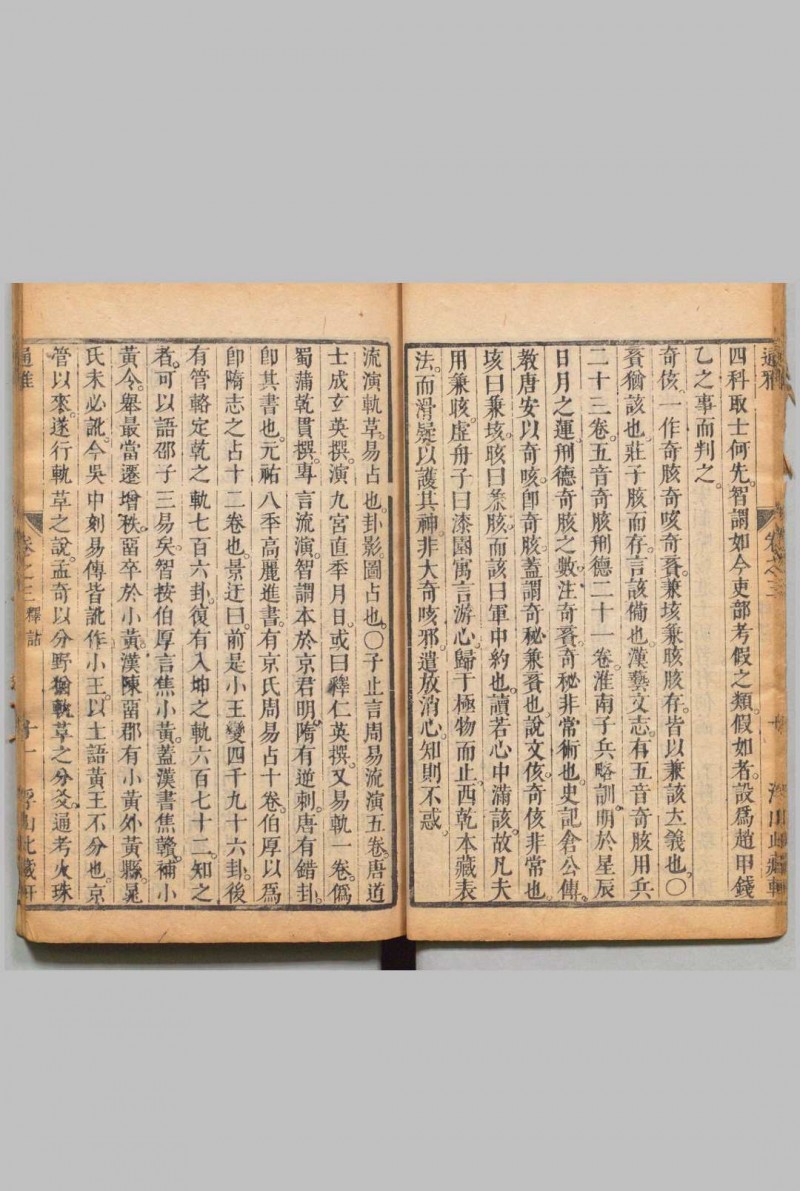 通雅
四科取士何先。智謂如今吏部考假之類。假如者。設爲趙甲錢
乙之事而判之。
奇侅。一作奇胲奇咳奇賌兼垓兼晐胲存。皆以兼該大義也。〇
賌猶該也。莊子胲而存。言該備也。漢藝文志。有五音奇胲用兵
二十三卷。五音奇胲刑德二十一卷。淮南子兵略訓。明於星辰
日月之運。刑德奇胲之數。注奇賌。奇秘非常術也。史記倉公傳。
教唐安以奇咳。卽奇胲。蓋謂奇秘兼賌也。說文侅。奇侅非常也。
垓曰兼垓。晐曰兼胲。而該曰軍中約也。讀若心中滿該。故凡夫
用兼晐。虛舟子曰漆園寓言游心。歸于極物而止。西乾本藏表
法。而滑疑以護其神。非大奇咳邪。遣放消心。知則不惑。
流演軌草。易占也。卦影。圖占也。〇子止言周易流演五卷。唐道
士成玄英撰。演九宮直季月日。或曰釋仁英撰。又易軌一卷。僞
蜀蒲乾貫撰。專言流演。智謂本於京君明。隋有逆刺。唐有錯卦。
卽其書也。元祐八季高麗進書。有京氏周易占十卷。伯厚以爲
卽隋志之占十二卷也。景迂曰。前是小王變四千九十六卦。後
有管輅定乾之軌七百六卦。復有入坤之軌六百七十二。知之
者。可以語邵子三易矣。智按伯厚言焦小黃。蓋漢書焦贛。補小
黃令。舉最當遷。增秩畱卒於小黃。漢陳畱郡有小黃外黃縣。晁
氏未必訛。今吳中刻易傳皆訛作小王。以土語黃王不分也。京
管以來。遂行軌草之說。孟奇以分野猶軌草之分爻。通考火珠
通雅
卷之三 釋詁
十一
浮山此藏軒